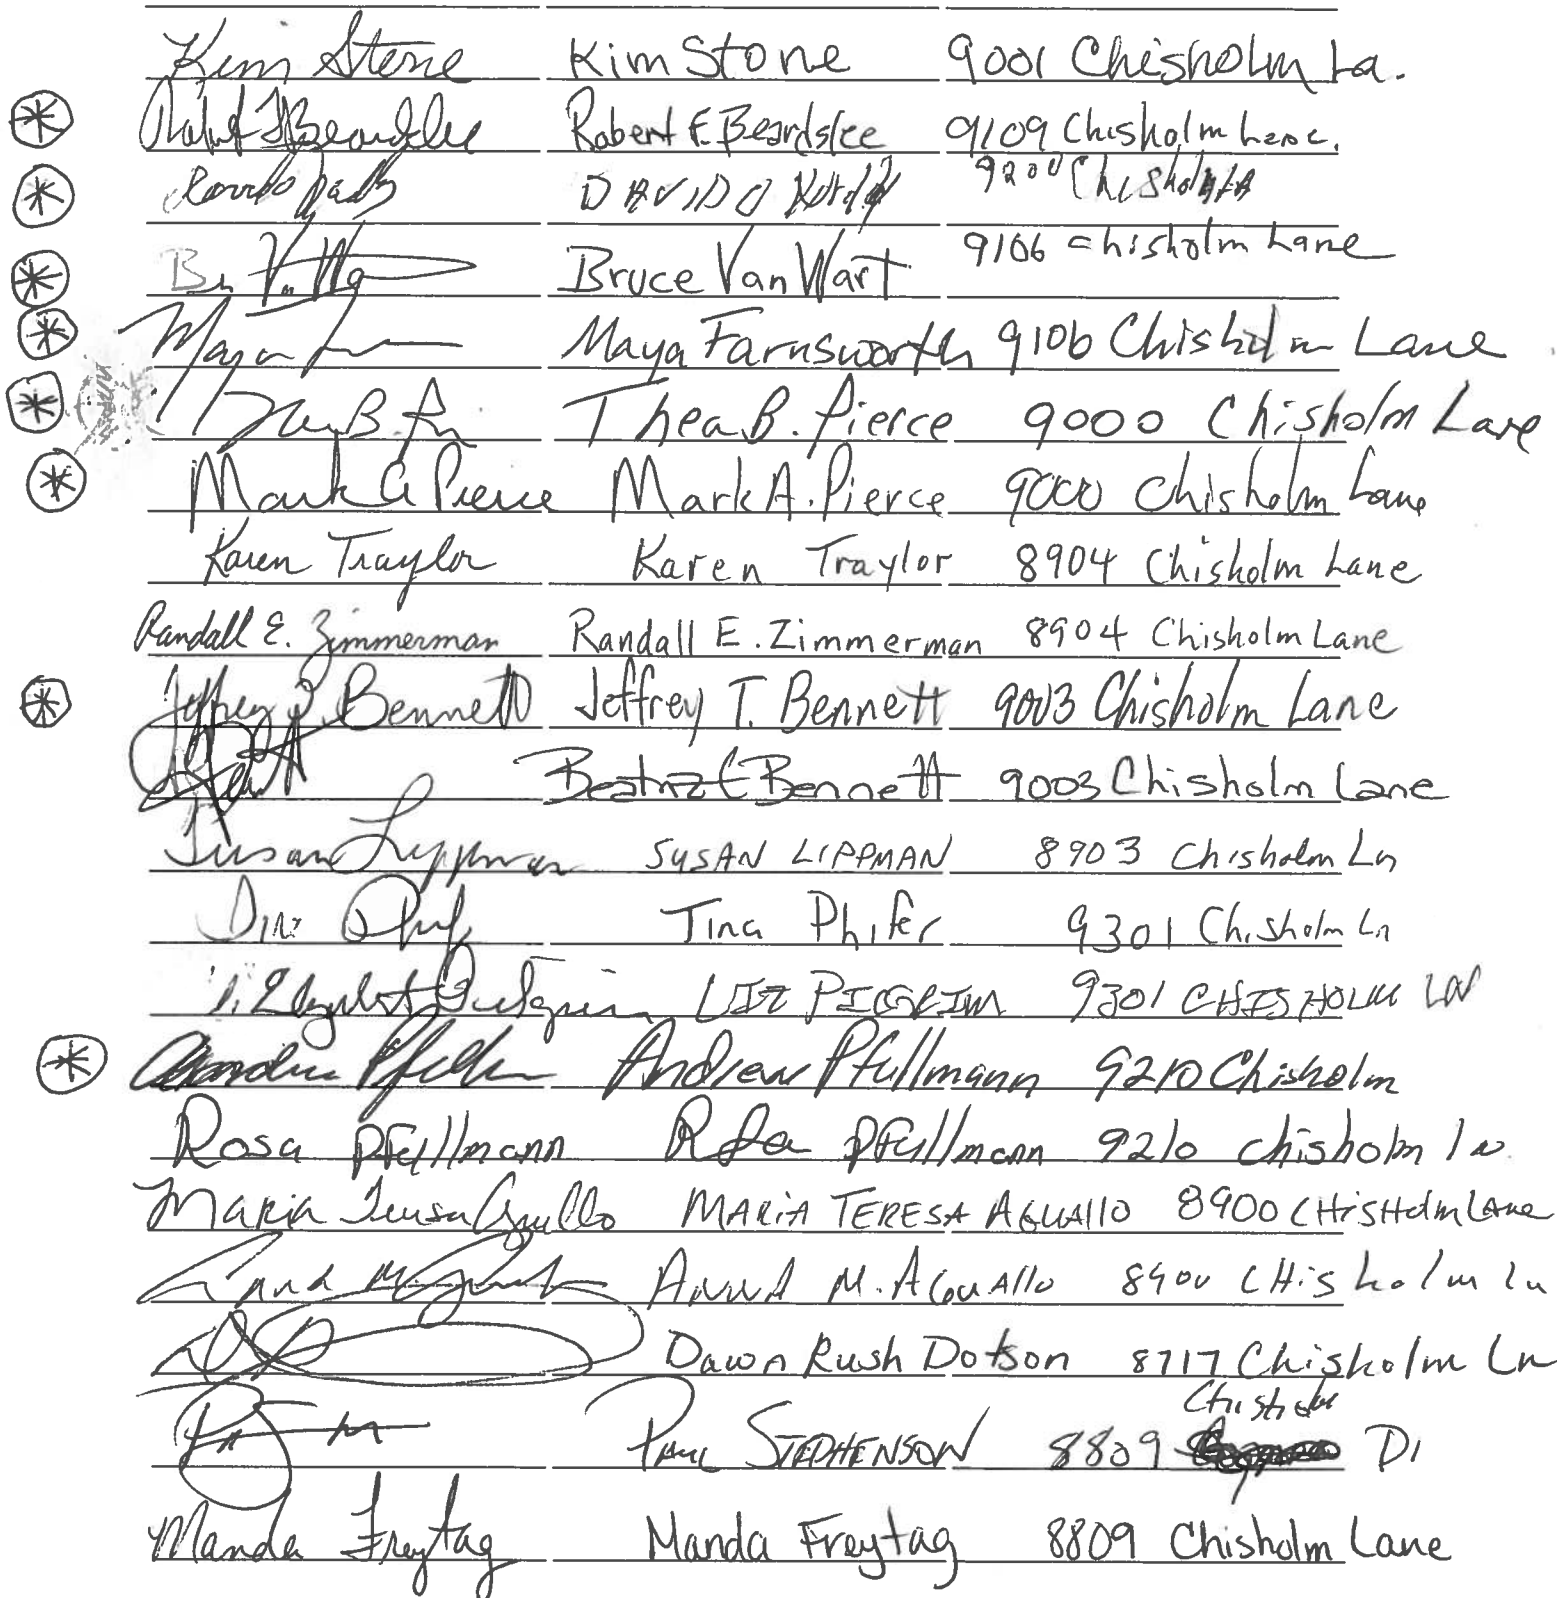 Kim Stone Kim Stone 9001 Chisholm La.
Robert F Beardslee Robert F. Beardslee 9109 Chisholm Lane.
DAVID O 9200 Chisholm
Bruce Van Wart 9106 Chisholm Lane
Maya Maya Farnsworth 9106 Chisholm Lane
Thea B. Pierce 9000 Chisholm Lane
Mark A Pierce Mark A. Pierce 9000 Chisholm Lane
Karen Traylor Karen Traylor 8904 Chisholm Lane
Randall E. Zimmerman Randall E. Zimmerman 8904 Chisholm Lane
Jeffrey T. Bennett Jeffrey T. Bennett 9003 Chisholm Lane
Beatriz E Bennett 9003 Chisholm Lane
Susan Lippman SUSAN LIPPMAN 8903 Chisholm Ln
Tina Phifer 9301 Chisholm Ln
LIZ PILGRIM 9301 CHISHOLM LN
Andrew Pfullmann 9210 Chisholm
Rosa Pfullmann Rosa Pfullmann 9210 chisholm ln
Maria Teresa Aguallo MARIA TERESA AGUALLO 8900 CHISHOLM LANE
Anna M. Aguallo 8900 CHISholm Ln
Dawn Rush Dotson 8717 Chisholm Ln
Chisholm
PAUL STEPHENSON 8809 Dr
Manda Freytag Manda Freytag 8809 Chisholm Lane